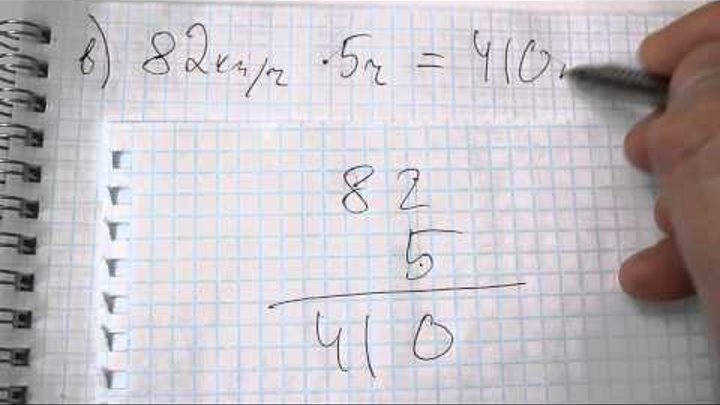 в) 82км/ч · 5ч = 410
82
5
410